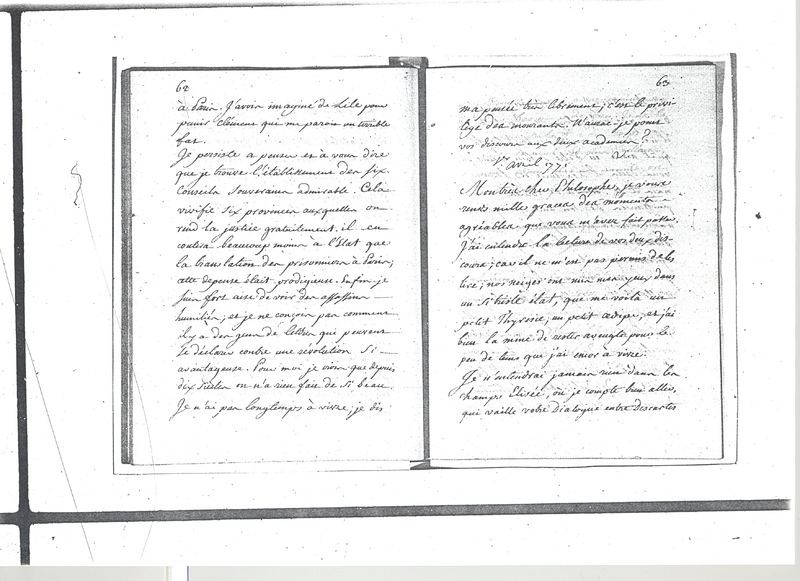 62
à Paris. J'avois imaginé de Lile pour
punir Clément qui me parois un terrible
fat.
Je persiste a penser et à vous dire
que je trouve l'établissement des six
Conseils Souverains admirable. Cela
vivifie six provinces auxquelles on
rend la justice gratuitement, il en
coutra beaucoup moins à l'état que
la translation des prisonniers à Paris;
cette depense était prodigieuse. Enfin je
suis fort aise de voir des assassins
humiliés, et je ne conçois pas comment
il y à des gens de lettres qui peuvent
se déclarer contre une révolution si
avantageuse. Pour moi je crois que depuis
dix siècles on n'a rien fait de si beau.
Je n'ai pas longtemps à vivre; je dis
63
ma pensée bien librement; c'est le privi-
lège des mourants. N'aurai-je point
vos discours aux deux académies?
1er avril 1771. V.
Mon très cher Philosophe, je vous
rends mille graces des moments
agréables que vous m'avez fait passer.
J'ai entendu la lecture de vos deux dis-
cours; car il ne m'est pas permis de les
lire; nos neiges ont mis mes yeux dans
un si triste état, que me voilà un
petit Thyrésie, un petit œdipe; et j'ai
bien la mine de rester aveugle pour le
peu de tems que j'ai encor à vivre.
Je n'entendrai jamais rien dans les
champs Elisée, où je compte bien aller,
qui vaille votre Dialogue entre Descartes